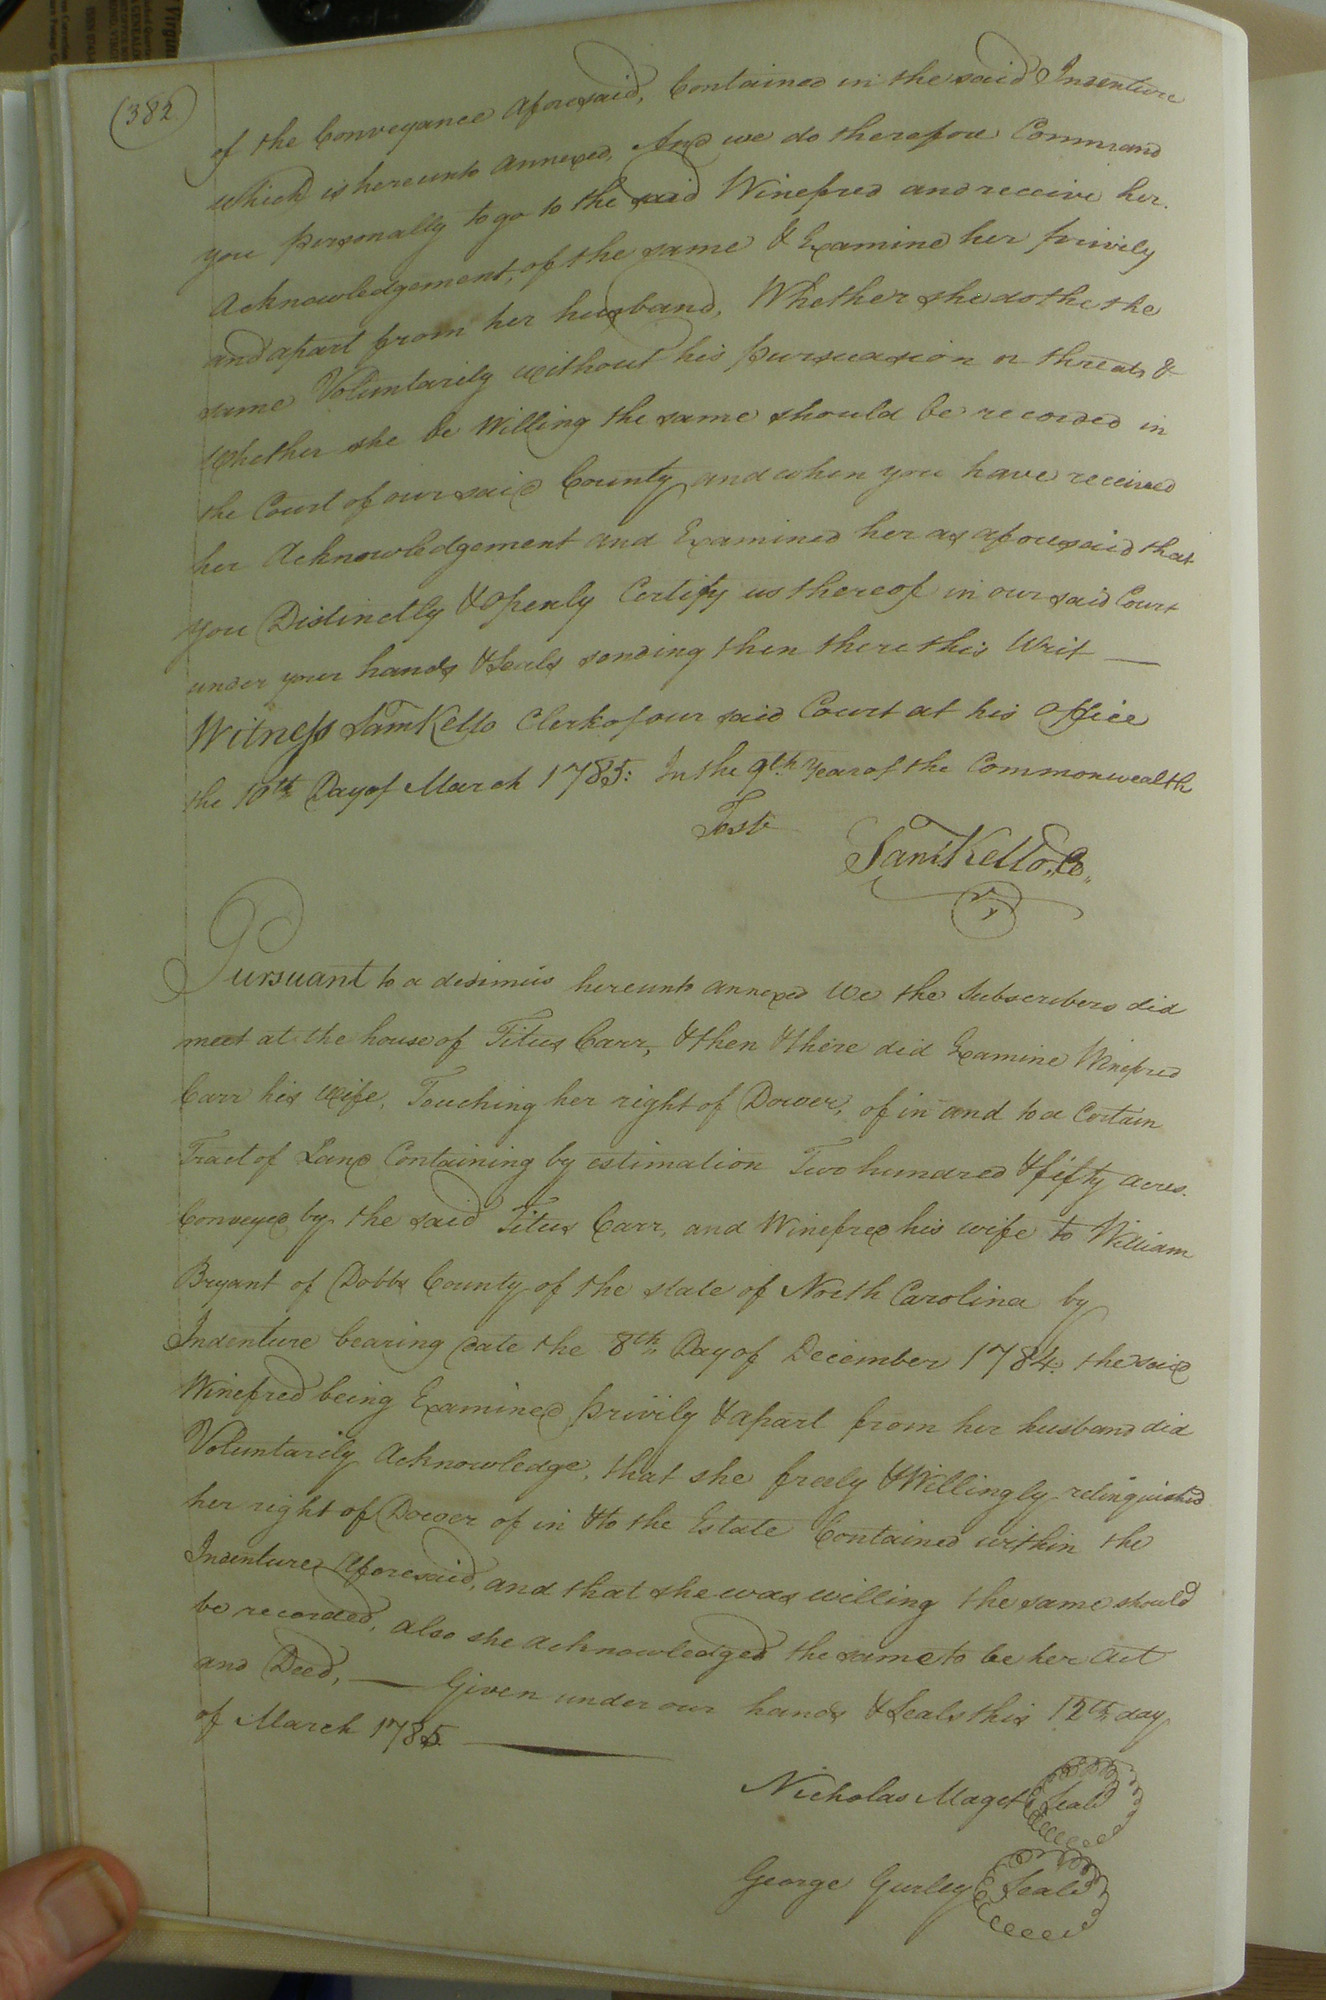 (382)
of the Conveyance aforesaid, Contained in the said Indenture
which is hereunto annexed, And we do therefore Command
you personally to go to the said Winefred and receive her
Acknowledgement, of the same & Examine her privily
and apart from her husband, Whether she doth the
same Voluntarily without his pursuasion or threats &
whether she be Willing the same should be recorded in
the Court of our said County and when you have received
her Acknowledgement and Examined her as aforesaid that
you Distinctly & Openly Certify us thereof in our said Court
under your hands & Seals sending then there this Writ —
Witness Saml Kello Clerk of our said Court at his office
the 10th Day of March 1785: In the 9th Year of the Commonwealth
Teste
Saml Kello, C.
Pursuant to a dedimus hereunto annexed We the Subscribers did
meet at the house of Titus Carr, & then & there did Examine Winefred
Carr his wife, Touching her right of Dower, of in and to a Certain
Tract of Land Containing by estimation Two hundred & fifty acres.
Conveyed by the said Titus Carr, and Winefred his wife to William
Bryant of Dobbs County of the state of North Carolina by
Indenture bearing date the 8th Day of December 1784. the said
Winefred being Examined privily & apart from her husband did
Voluntarily Acknowledge, that she freely & Willingly relinquished
her right of Dower of in & to the Estate Contained within the
Indenture Aforesaid, and that she was willing the same should
be recorded, also she acknowledged the same to be her Act
and Deed, — Given under our hands & Seals this 12th day
of March 1785. —
Nicholas Maget Seal
George Gurley Seal